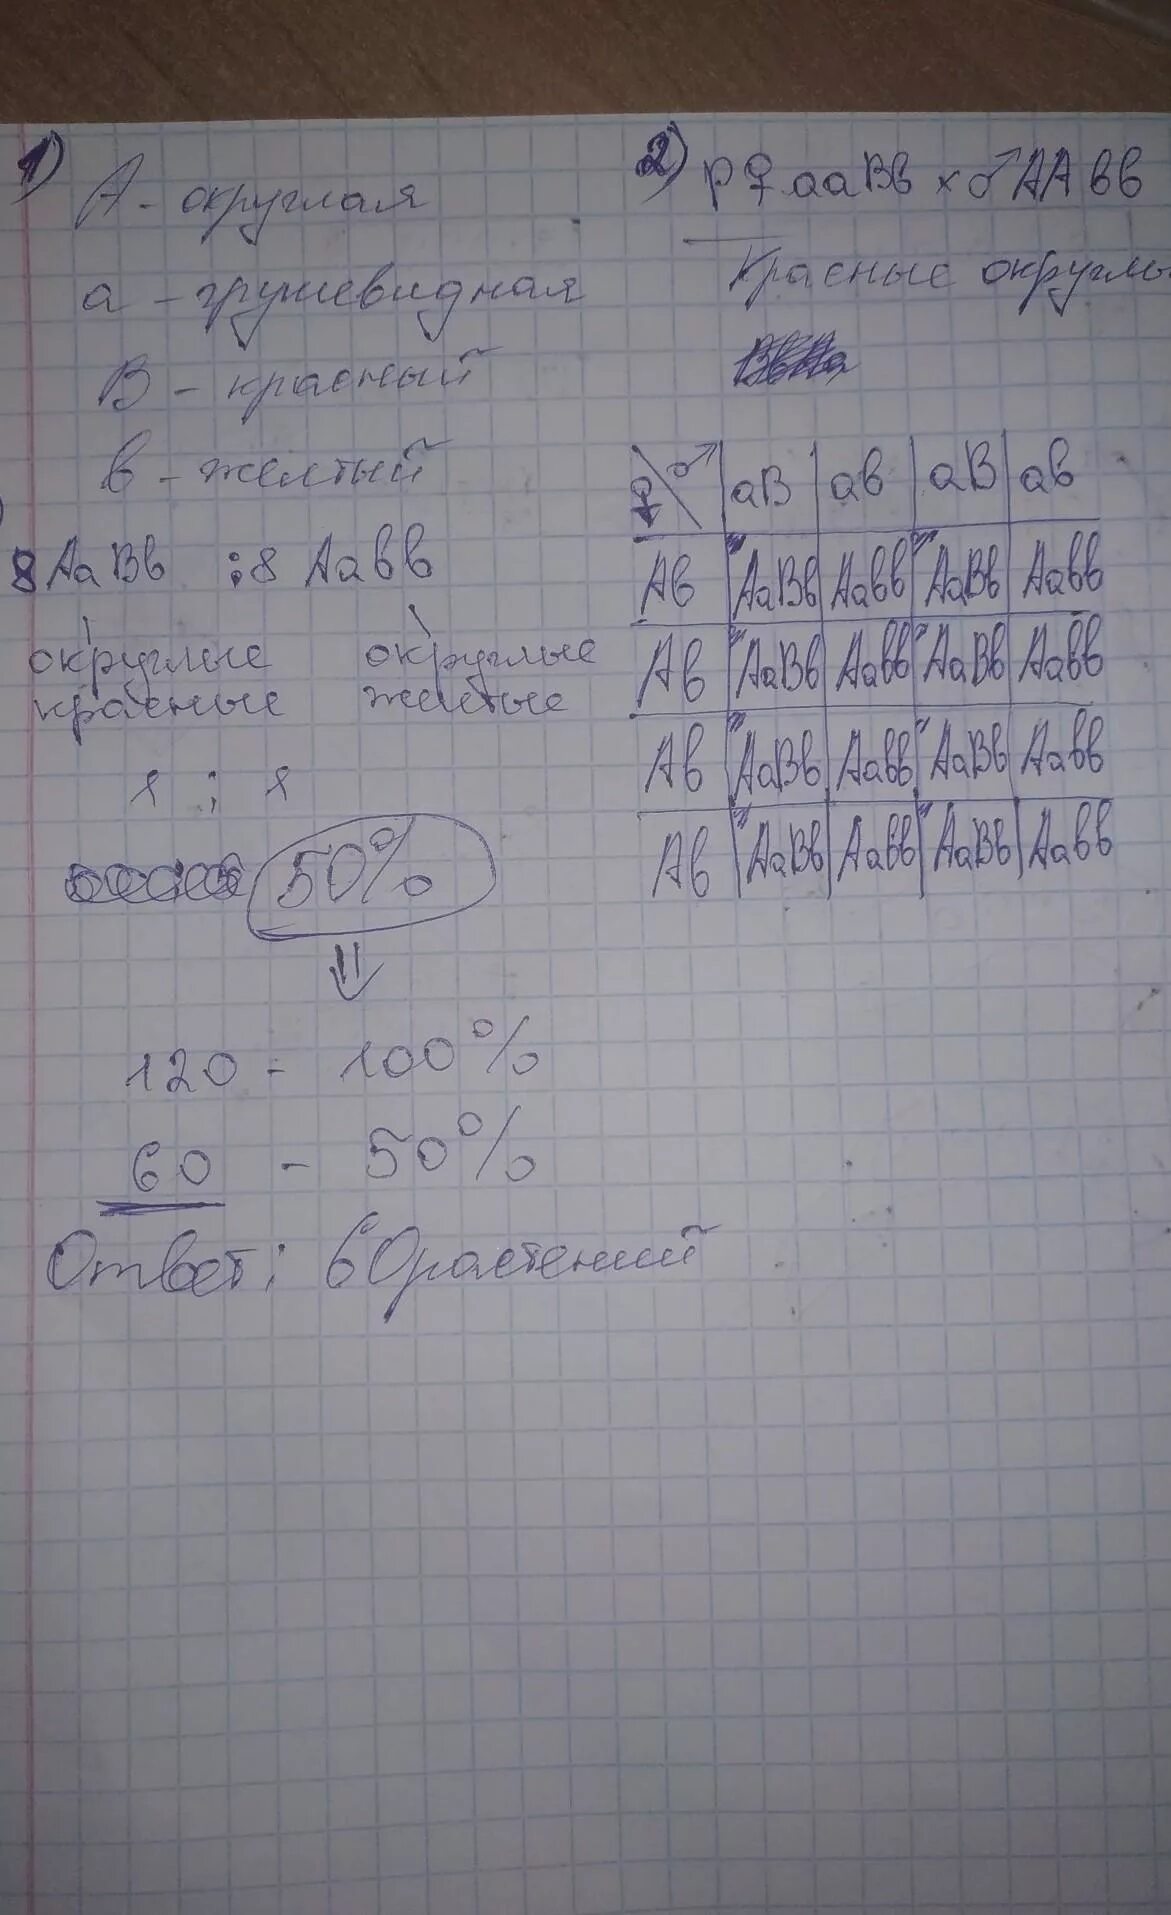 1)
А - округлая
а - грушевидная
В - красный
в - желтый
8 АаВв : 8 Аавв
округлые округлые
красные желтые
1 : 1
50%
120 - 100%
60 - 50%
Ответ: 60 растений
2) Р ♀ ааВв × ♂ ААвв
Красные округлы
♀ ♂ аВ ав аВ ав
Ав АаВв Аавв АаВв Аавв
Ав АаВв Аавв АаВв Аавв
Ав АаВв Аавв АаВв Аавв
Ав АаВв Аавв АаВв Аавв